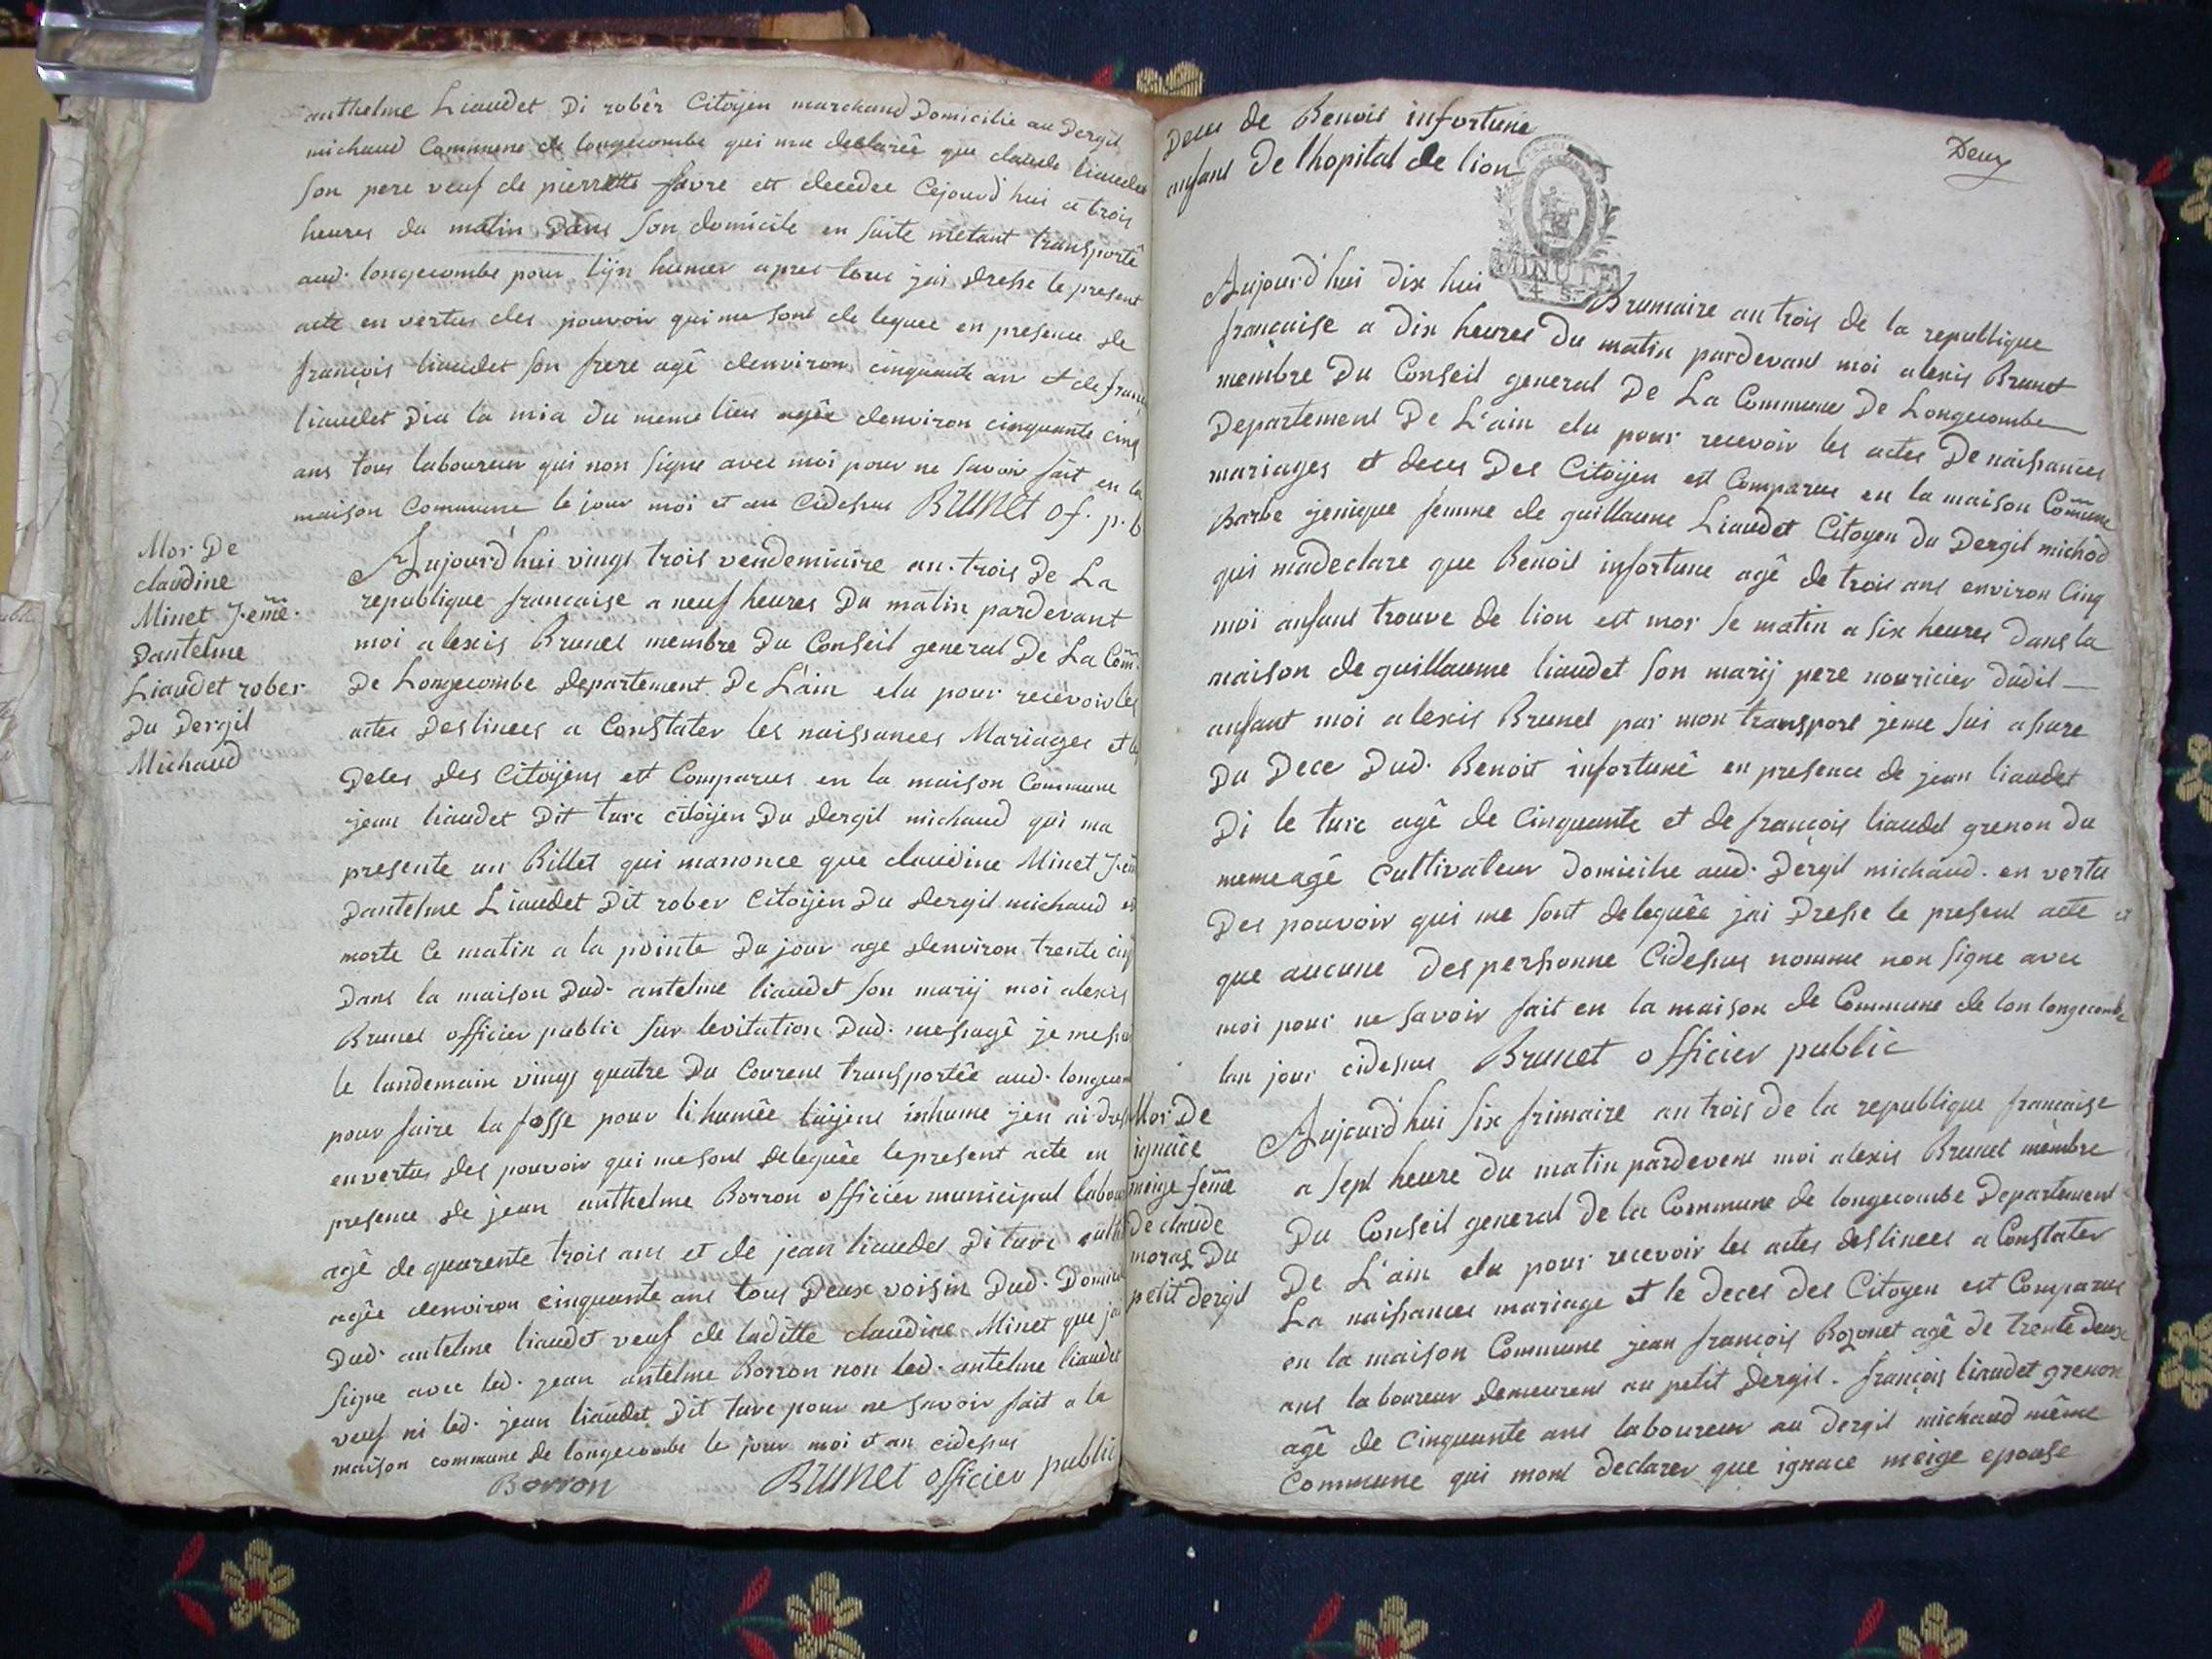 anthelme Liaudet Di robêr Citoÿen marchand Domicilie au Dergil
michaud Commune de longecombe qui ma declarêe que claude liaudet
son pere veuf de pierrette favre est decedee Cejourd'hui a trois
heures du matin Dans son domicile en suite metant transportê
aud. longecombe pour lijn humer apres tout jai dresse le present
acte en vertus des pouvoir qui me sont de leguee en presence de
françois liaudet son frere agê denviron cinquante an et de franc
liaudet Dia la mia du meme lieu agêe denviron cinquante cinq
ans tous laboureur qui non signe avec moi pour ne savoir fait en la
maison Commune le jour moi et an cidessus BRUNET of. p. b
Mor De
claudine
Minet f.eme.
Dantelme
Liaudet rober
Du Dergil
Michaud
Aujourd'hui vingt trois vendemiaire an. trois De La
republique francaise a neuf heures Du matin pardevant
moi alexis Brunet membre Du Conseil general De La Com.
De Longecombe departement De L'ain elu pour recevoir les
actes Destinees a Constater les naissances Mariages et le
Deces des Citoÿens est Comparus en la maison Commune
jean liaudet Dit turc citoÿen Du dergil michaud qui ma
presente un Billet qui manonce que claudine Minet f.em
Dantelme Liaudet Dit rober Citoÿen Du dergil michaud es
morte Ce matin a la pointe Du jour age denviron trente cinq
Dans la maison Dud. antelme liaudet son marij moi alexis
Brunet officier public sur levitation Dud. messagê je me sui
le landemain vingt quatre Du Courent transportêe aud. longecom
pour faire la fosse pour li humêe laijent inhume jen ai dres
envertus des pouvoir qui me sont deleguêe le present acte en
presence de jean anthelme Borron officier municipal labour
agê de quarente trois ans et de jean liaudet Di turc cultiv
agêe denviron cinquante ans tous Deux voisin Dud. Domicil
Dud. antelme liaudet veuf de laditte claudine Minet que jai
signe avec led. jean antelme Borron non led. antelme liaudet
veuf ni led. jean liaudet Dit turc pour ne savoir fait a la
maison commune de longecombe le jour moi et an cidessus
Borron BRUNET officier public
Deces de Benoit infortune
anfant De lhopital de lion
Deux
MINUTE
4 S.
Aujourd'hui dix hui Brumaire an trois de la republique
française a dix heures Du matin pardevant moi alexis Brunet
membre Du Conseil general De La Commune De Longecombe
Departement De L'ain elu pour recevoir les actes De naissances
mariages et deces Des Citoÿen est Comparue en la maison Comune
Barbe jenique femme de guillaume Liaudet Citoyen du Dergil michôd
qui madeclare que Benoit infortune agê de trois ans environ Cinq
moi anfant trouve de lion est mor se matin a six heures Dans la
maison de guillaume liaudet son marij pere nouricier dudit
anfant moi alexis Brunet par mon transport jeme sui assure
Du Dece Dud. Benoit infortunê en presence de jean liaudet
Di le turc agê de Cinquante et de françois liaudet grenon du
meme agê Cultivateur Domicilie aud. Dergil michaud. en vertu
Des pouvoir qui me sont deleguêe jai Dresse le present acte et
que aucune des perssonne Cidessus nomme non signe avec
moi pour ne savoir fait en la maison de Commune de lon longecombe
lan jour cidessus Brunet officier public
Mor De
ignace
meige feme
De claude
moraz Du
petit dergil
Aujourd'hui six frimaire an trois de la republique francaise
a sept heure du matin pardevent moi alexis Brunet membre
Du Conseil general de la Commune de longecombe Departement
De L'ain elu pour recevoir les actes destinees a Constater
La naissances mariage et le deces des Citoyen est Comparus
en la maison Commune jean françois Bozonet agê de trente deux
ans laboureur demeurent au petit Dergil. françois liaudet grenon
agê de Cinquante ans laboureur au dergil michaud même
Commune qui mont declarer que ignace meige epouse